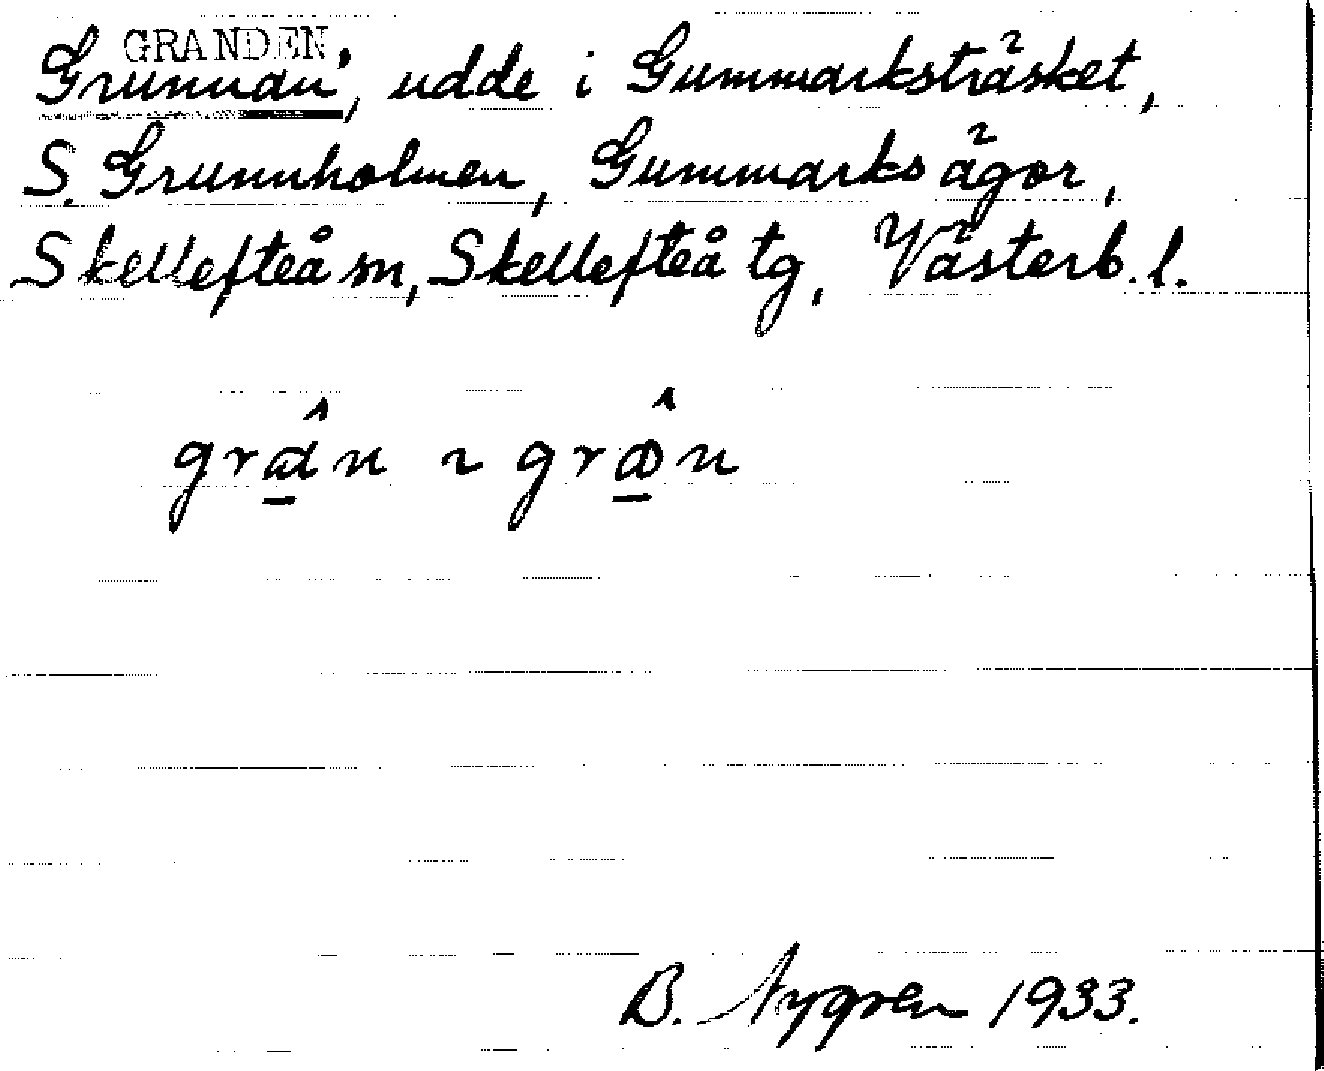 GRANDEN
Grunnan', udde i Gummarksträsket,
S. Grunnholmen, Gummarks ägor,
Skellefteå sn, Skellefteå tg, Västerb. l.
B. Nygren 1933.